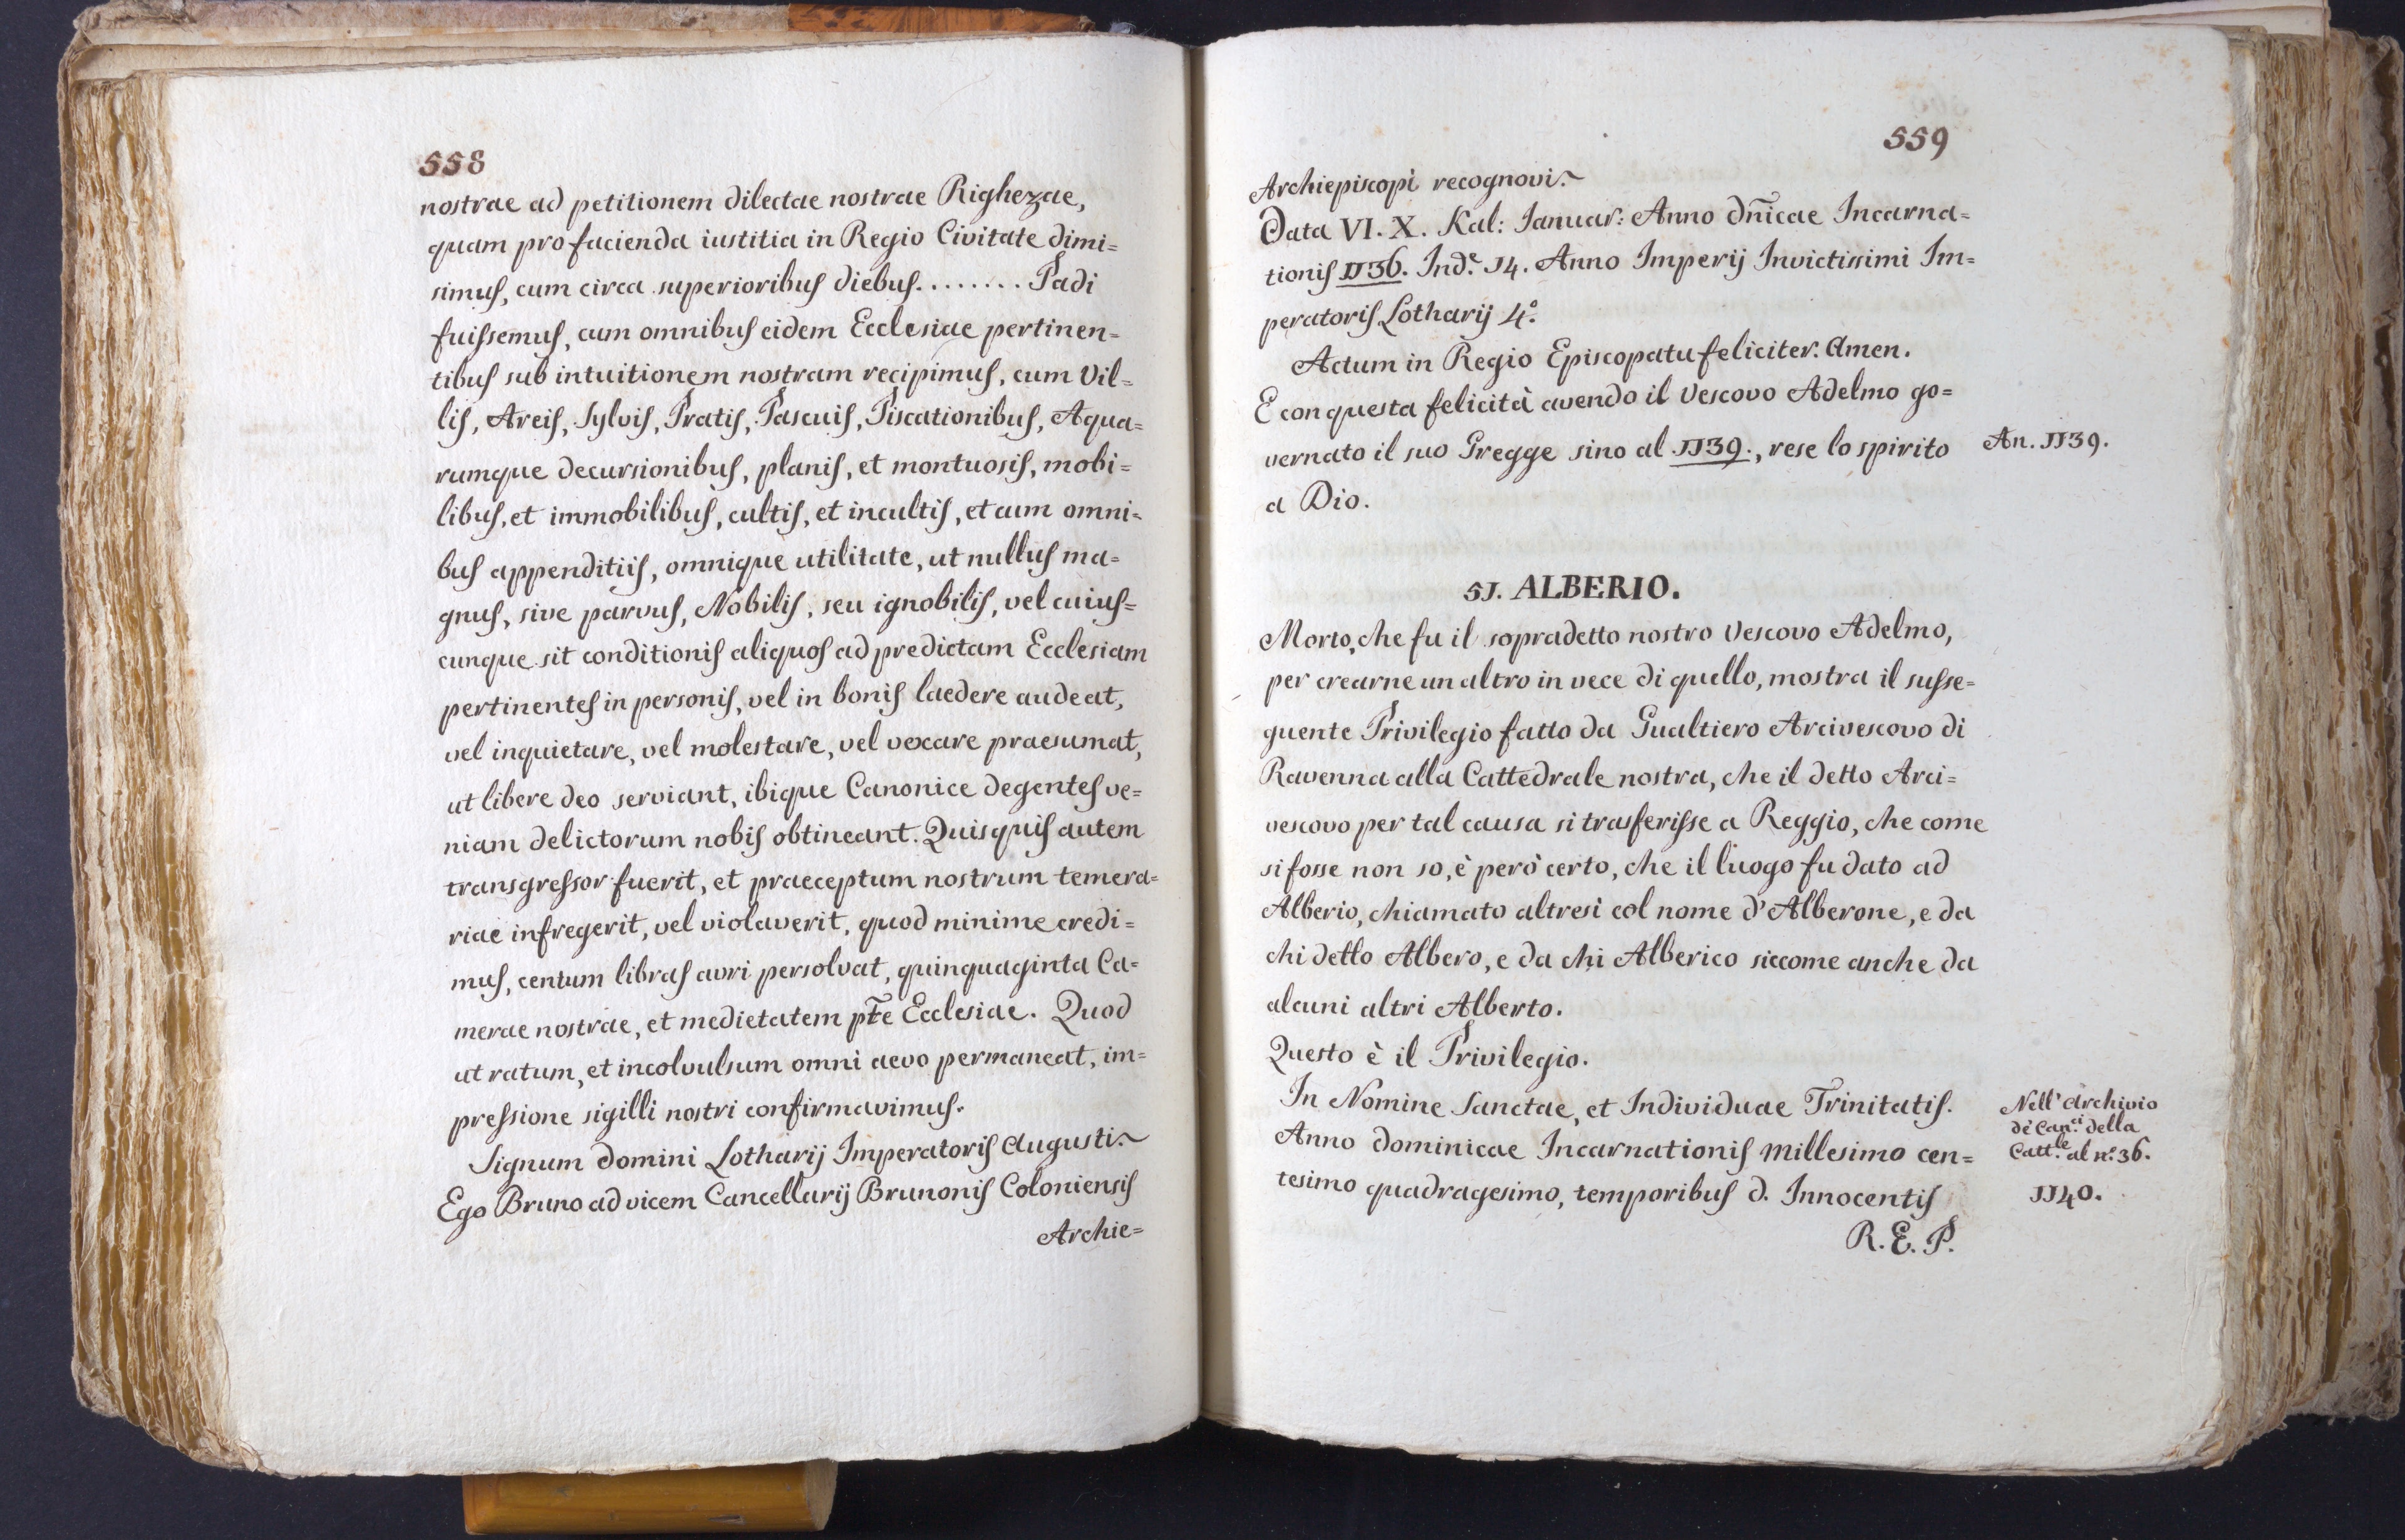 558
nostrae ad petitionem dilectae nostrae Righezae,
quam pro facienda iustitia in Regio Civitate dimi=
simus, cum circa superioribus diebus........ Padi
fuissemus, cum omnibus eidem Ecclesiae pertinen=
tibus sub intuitionem nostram recipimus, cum Vil=
lis, Areis, Sylvis, Pratis, Pascuis, Piscationibus, Aqua=
rumque decursionibus, planis, et montuosis, mobi=
libus, et immobilibus, cultis, et incultis, et cum omni=
bus appenditiis, omnique utilitate, ut nullus ma=
gnus, sive parvus, Nobilis, seu ignobilis, vel cuius=
cunque sit conditionis aliquos ad predictam Ecclesiam
pertinentes in personis, vel in bonis laedere audeat,
vel inquietare, vel molestare, vel vexare praesumat,
ut libere deo serviant, ibique Canonice degentes ve=
niam delictorum nobis obtineant. Quisquis autem
transgressor fuerit, et praeceptum nostrum temera=
riae infregerit, vel violaverit, quod minime credi=
mus, centum libras auri persolvat, quinquaginta Ca=
merae nostrae, et medietatem pt̃e Ecclesiae. Quod
ut ratum, et incolvulsum omni aevo permaneat, im=
pressione sigilli nostri confirmavimus.
Signum domini Lotharij Imperatoris Augusti.~
Ego Bruno ad vicem Cancellarij Brunonis Coloniensis
Archie=
559
Archiepiscopi recognovi.~
Data VI. X. Kal: Ianuar: Anno dñicae Incarna=
tionis 1136. Ind.e 14. Anno Imperij Invictissimi Im=
peratoris Lotharij 4.o
Actum in Regio Episcopatu feliciter. Amen.
E con questa felicità avendo il Vescovo Adelmo go=
vernato il suo Gregge sino al 1139., rese lo spirito
An. 1139.
a Dio.
51. ALBERIO.
Morto, che fu il sopradetto nostro Vescovo Adelmo,
per crearne un altro in vece di quello, mostra il susse=
guente Privilegio fatto da Gualtiero Arcivescovo di
Ravenna alla Cattedrale nostra, che il detto Arci=
vescovo per tal causa si trasferisse a Reggio, che come
si fosse non so, è però certo, che il luogo fu dato ad
Alberio, chiamato altresì col nome d'Alberone, e da
chi detto Albero, e da chi Alberico siccome anche da
alcuni altri Alberto.
Questo è il Privilegio.
In Nomine Sanctae, et Individuae Trinitatis.
Anno dominicae Incarnationis millesimo cen=
tesimo quadragesimo, temporibus d. Innocentis
R. E. P.
Nell' Archivio
de Can.ci della
Catt.le al n.o 36.
1140.